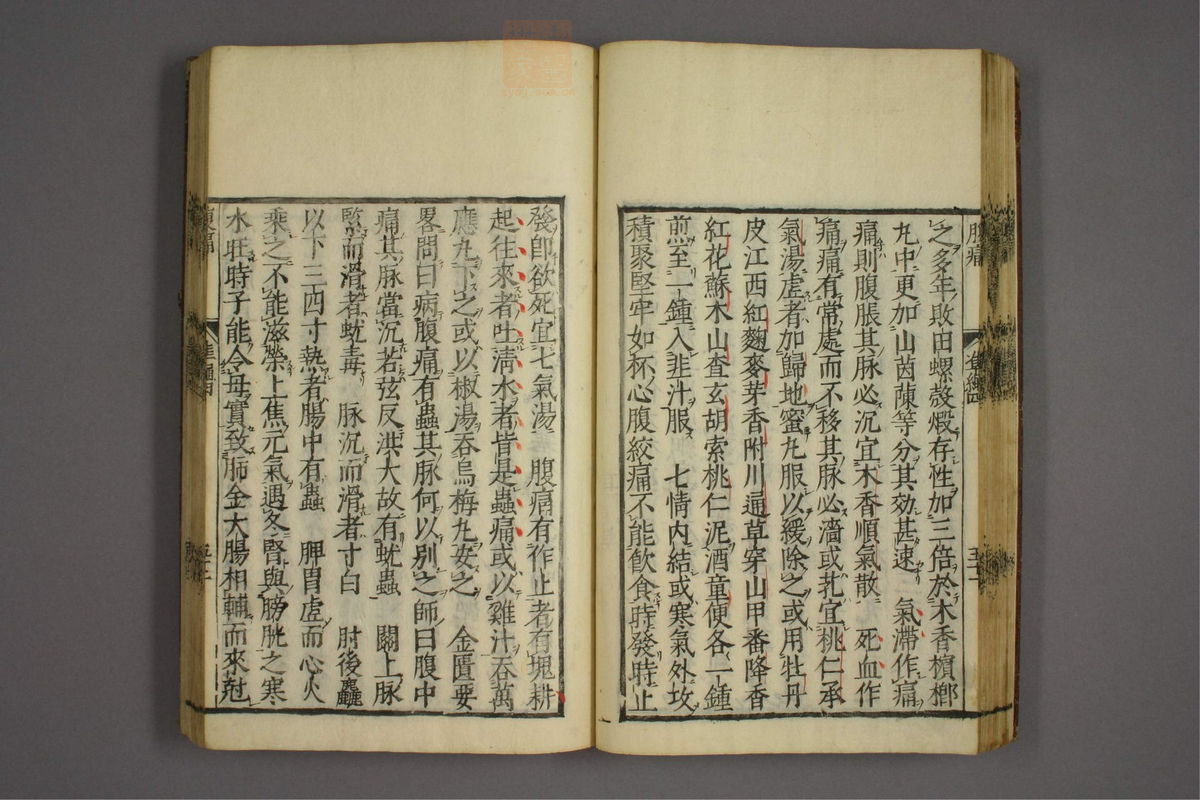 腹痛
之多年敗田螺殼煅存性加三倍於木香檳榔
丸中更加山茵陳等分其効甚速 氣滯作痛
痛則腹脹其脉必沉宜木香順氣散 死血作
痛痛有常處而不移其脉必濇或芤宜桃仁承
氣湯虛者加歸地蜜丸服以緩除之或用牡丹
皮江西紅麴麥芽香附川通草穿山甲番降香
紅花蘇木山查玄胡索桃仁泥酒童便各一鍾
煎至一鍾入韭汁服 七情內結或寒氣外攻
積聚堅牢如杯心腹絞痛不能飲食時發時止
發卽欲死宜七氣湯 腹痛有作止者有塊耕
起往來者吐淸水者皆是蟲痛或以雞汁吞萬
應丸下之或以椒湯吞烏梅丸安之 金匱要
畧問曰病腹痛有蟲其脉何以別之師曰腹中
痛其脉當沉若弦反洪大故有蚘蟲 關上脉
緊而滑者蚘毒 脉沉而滑者寸白 肘後麤
以下三四寸熱者腸中有蟲 脾胃虛而心火
乘之不能滋榮上焦元氣遇冬腎與膀胱之寒
水旺時子能令母實致肺金大腸相輔而來尅